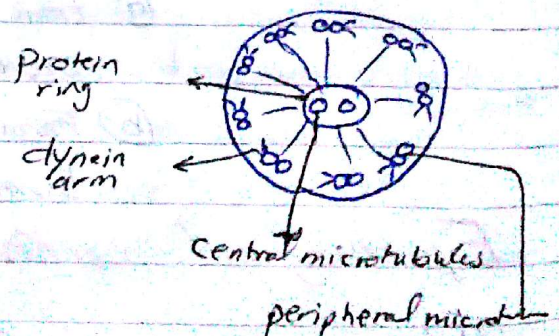 Protein
ring
dynein
arm
Central microtubules
peripheral